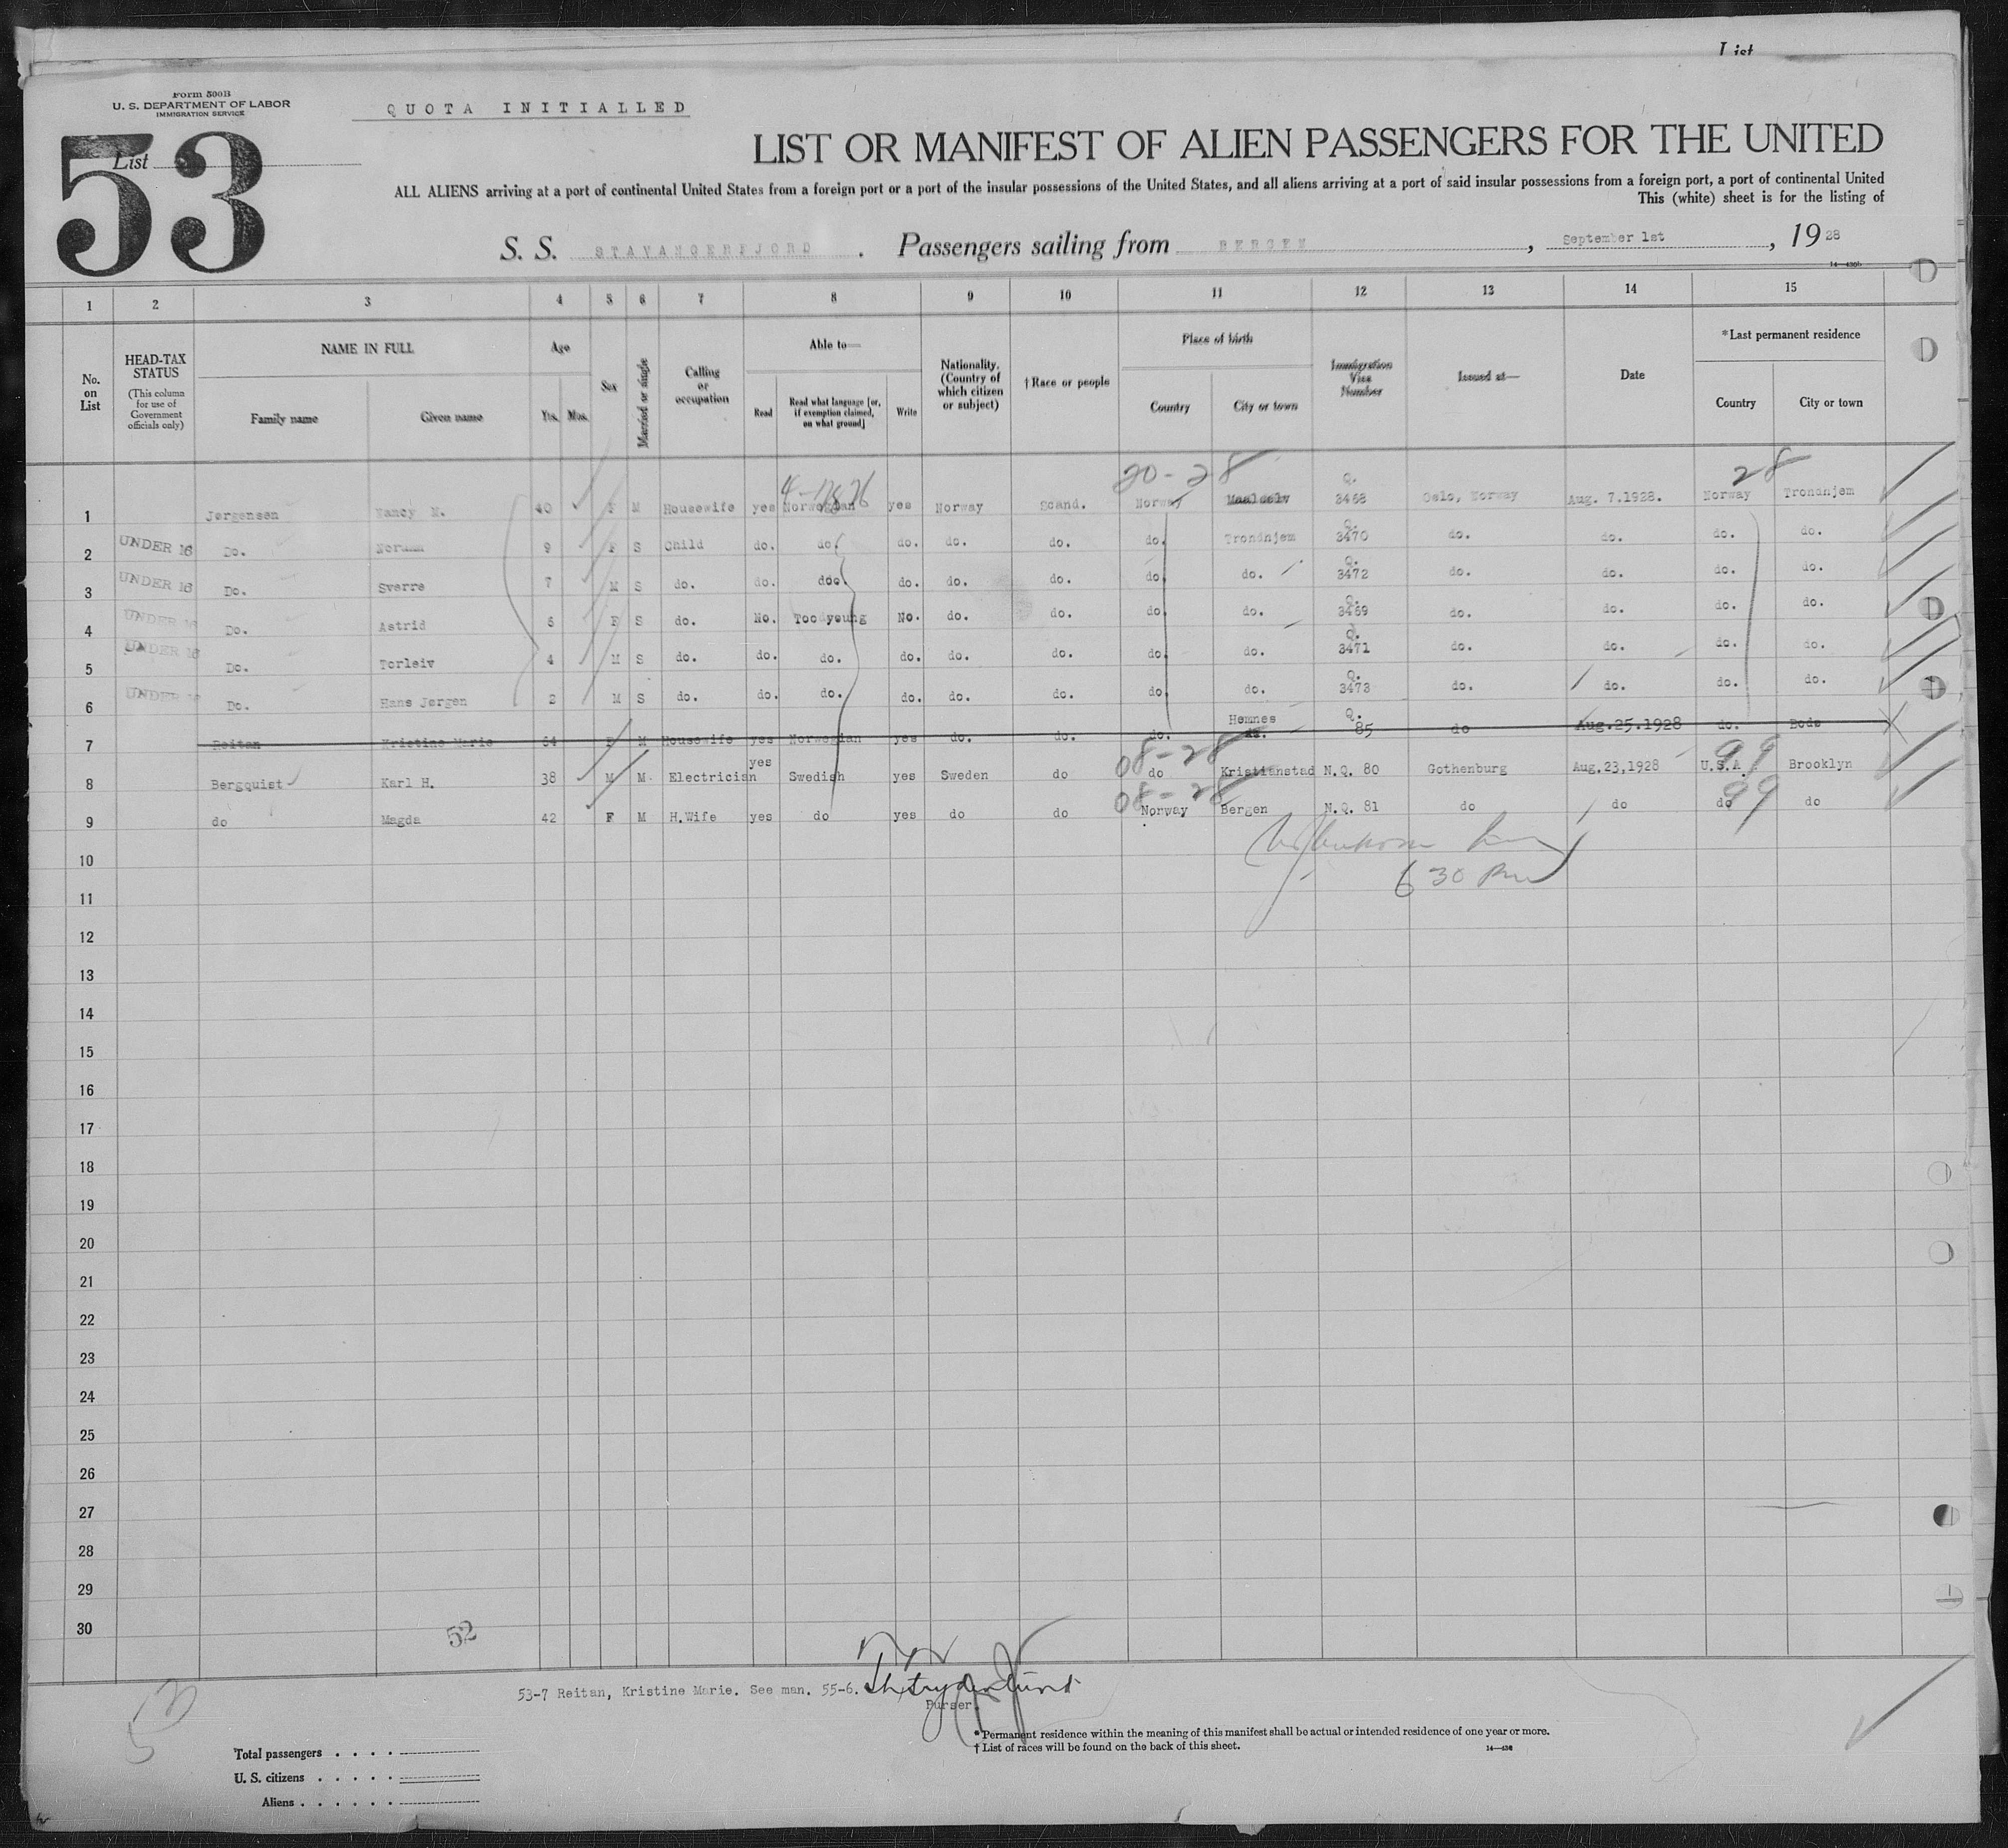 List
Form 500B
U. S. DEPARTMENT OF LABOR
IMMIGRATION SERVICE
QUOTA INITIALLED
53
List
LIST OR MANIFEST OF ALIEN PASSENGERS FOR THE UNITED
ALL ALIENS arriving at a port of continental United States from a foreign port or a port of the insular possessions of the United States, and all aliens arriving at a port of said insular possessions from a foreign port, a port of continental United
This (white) sheet is for the listing of
S. S. STAVANGERFJORD . Passengers sailing from BERGEN , September 1st , 19 28
14—430b
1 2 3 4 5 6 7 8 9 10 11 12 13 14 15
No. on List
HEAD-TAX STATUS (This column for use of Government officials only)
NAME IN FULL Family name Given name
Age Yrs. Mos.
Sex
Married or single
Calling or occupation
Able to— Read Read what language [or, if exemption claimed, on what ground] Write
Nationality. (Country of which citizen or subject)
†Race or people
Place of birth Country City or town
Immigration Visa Number
Issued at—
Date
*Last permanent residence Country City or town
20-28 28
1 Jørgensen Nancy M. 40 F M Housewife yes Norwegian yes Norway Scand. Norway Maalselv Q. 3468 Oslo, Norway Aug. 7.1928. Norway Trondnjem
2 UNDER 16 Do. Norunn 9 F S Child do. do. do. do. do. do. Trondnjem Q. 3470 do. do. do. do.
3 UNDER 16 Do. Sverre 7 M S do. do. do. do. do. do. do. do. Q. 3472 do. do. do. do.
4 UNDER 16 Do. Astrid 6 F S do. No. Too young No. do. do. do. do. Q. 3469 do. do. do. do.
5 UNDER 16 Do. Torleiv 4 M S do. do. do. do. do. do. do. do. Q. 3471 do. do. do. do.
6 UNDER 16 Do. Hans Jørgen 2 M S do. do. do. do. do. do. do. do. Q. 3473 do. do. do. do.
7 Reitan Kristine Marie 64 F M Housewife yes Norwegian yes do. do. do. Hemnes Q. 85 do Aug.25.1928 do. Bodø
08-28 99
8 Bergquist Karl H. 38 M M Electrician yes Swedish yes Sweden do do Kristianstad N.Q. 80 Gothenburg Aug.23,1928 U.S.A. Brooklyn
08-28 99
9 do Magda 42 F M H.Wife yes do yes do do Norway Bergen N.Q. 81 do do do do
6 30 Pm
10
11
12
13
14
15
16
17
18
19
20
21
22
23
24
25
26
27
28
29
30
52
53-7 Reitan, Kristine Marie. See man. 55-6.
Purser.
*Permanent residence within the meaning of this manifest shall be actual or intended residence of one year or more.
†List of races will be found on the back of this sheet.
14—430
Total passengers . . . .
U. S. citizens . . . . .
Aliens . . . . . .